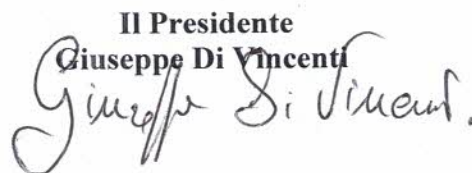 Il Presidente
Giuseppe Di Vincenti
Giuseppe Di Vincenti.